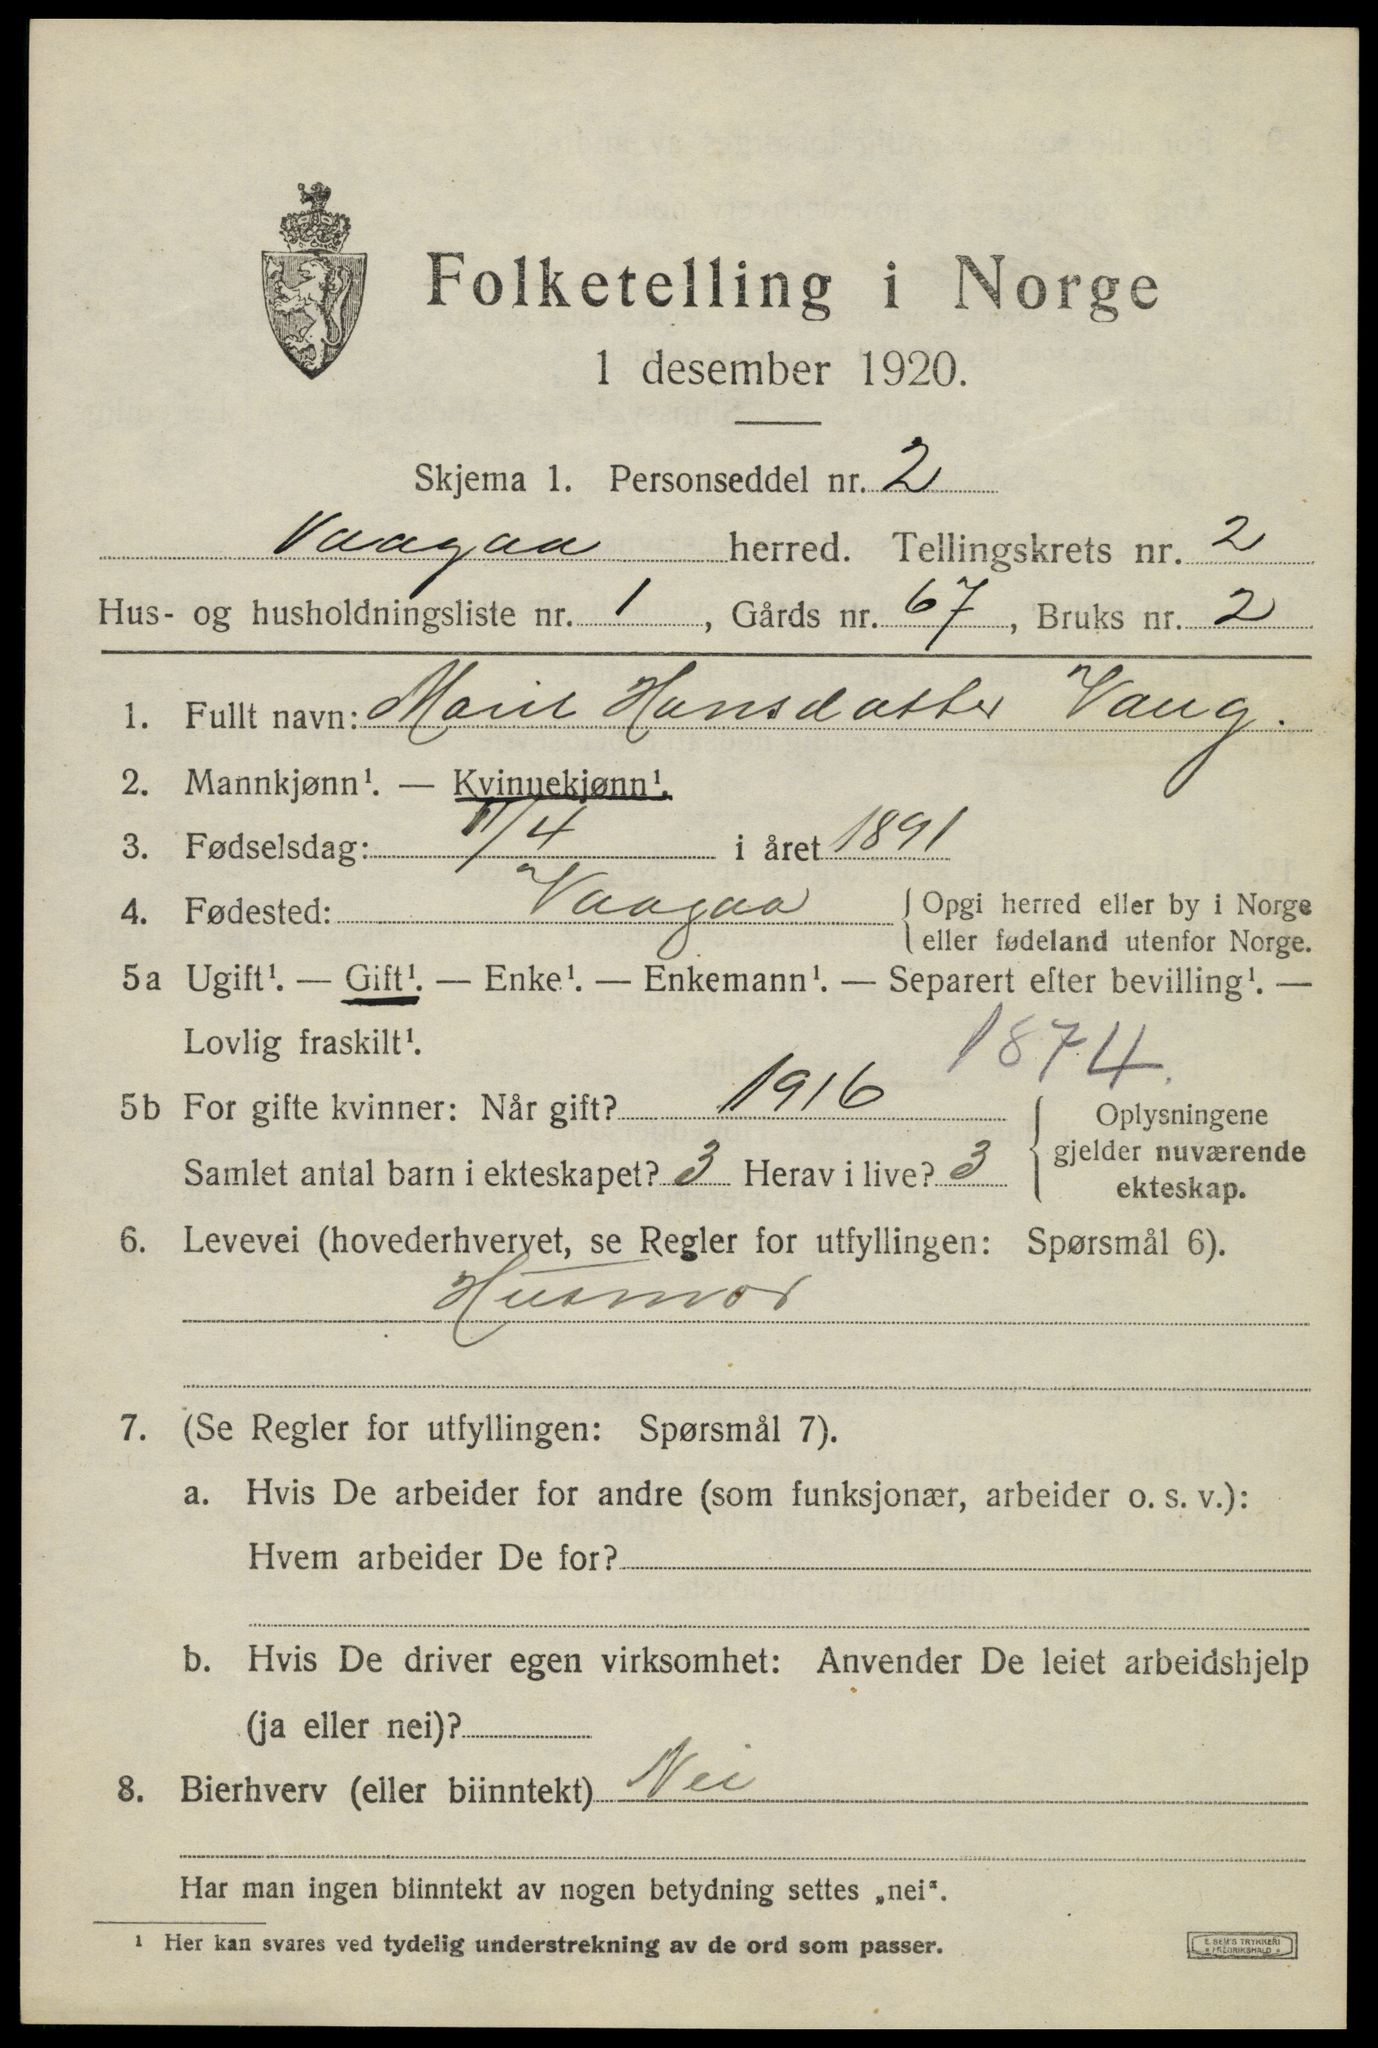 Folketelling i Norge
1 desember 1920.
Skjema 1. Personseddel nr. 2
Vaagaa herred. Tellingskrets nr. 2
Hus- og husholdningsliste nr. 1, Gårds nr. 67, Bruks nr. 2
1. Fullt navn: Marit Hansdatter Vang.
2. Mannkjønn¹. — Kvinnekjønn¹.
3. Fødselsdag: 11/4 i året 1891
4. Fødested: Vaagaa { Opgi herred eller by i Norge
eller fødeland utenfor Norge.
5a Ugift¹. — Gift¹. — Enke¹. — Enkemann¹. — Separert efter bevilling¹. —
Lovlig fraskilt¹.
1874.
5b For gifte kvinner: Når gift? 1916 { Oplysningene
gjelder nuværende
Samlet antal barn i ekteskapet? 3 Herav i live? 3
ekteskap.
6. Levevei (hovederhvervet, se Regler for utfyllingen: Spørsmål 6).
Husmor
7. (Se Regler for utfyllingen: Spørsmål 7).
a. Hvis De arbeider for andre (som funksjonær, arbeider o. s. v.):
Hvem arbeider De for?
b. Hvis De driver egen virksomhet: Anvender De leiet arbeidshjelp
(ja eller nei)?
8. Bierhverv (eller biinntekt) Nei
Har man ingen biinntekt av nogen betydning settes „nei".
¹ Her kan svares ved tydelig understrekning av de ord som passer.
E. SEM'S TRYKKERI
FREDRIKSHALD